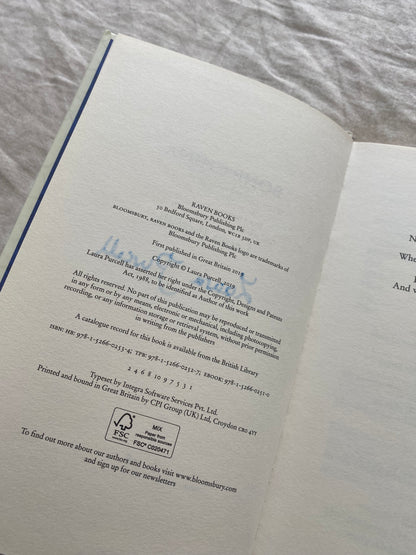 RAVEN BOOKS
Bloomsbury Publishing Plc
50 Bedford Square, London, WC1B 3DP, UK
BLOOMSBURY, RAVEN BOOKS and the Raven Books logo are trademarks of
Bloomsbury Publishing Plc
First published in Great Britain 2019
Copyright © Laura Purcell 2019
Laura Purcell has asserted her right under the Copyright, Designs and Patents
Act, 1988, to be identified as Author of this work
All rights reserved. No part of this publication may be reproduced or transmitted
in any form or by any means, electronic or mechanical, including photocopying,
recording, or any information storage or retrieval system, without prior permission
in writing from the publishers
A catalogue record for this book is available from the British Library
ISBN: HB: 978-1-5266-0255-4; TPB: 978-1-5266-0252-7; EBOOK: 978-1-5266-0251-0
2 4 6 8 10 9 7 5 3 1
Typeset by Integra Software Services Pvt. Ltd.
Printed and bound in Great Britain by CPI Group (UK) Ltd, Croydon CR0 4YY
FSC
www.fsc.org
MIX
Paper from
responsible sources
FSC® C020471
To find out more about our authors and books visit www.bloomsbury.com
and sign up for our newsletters
N
Whe
And w